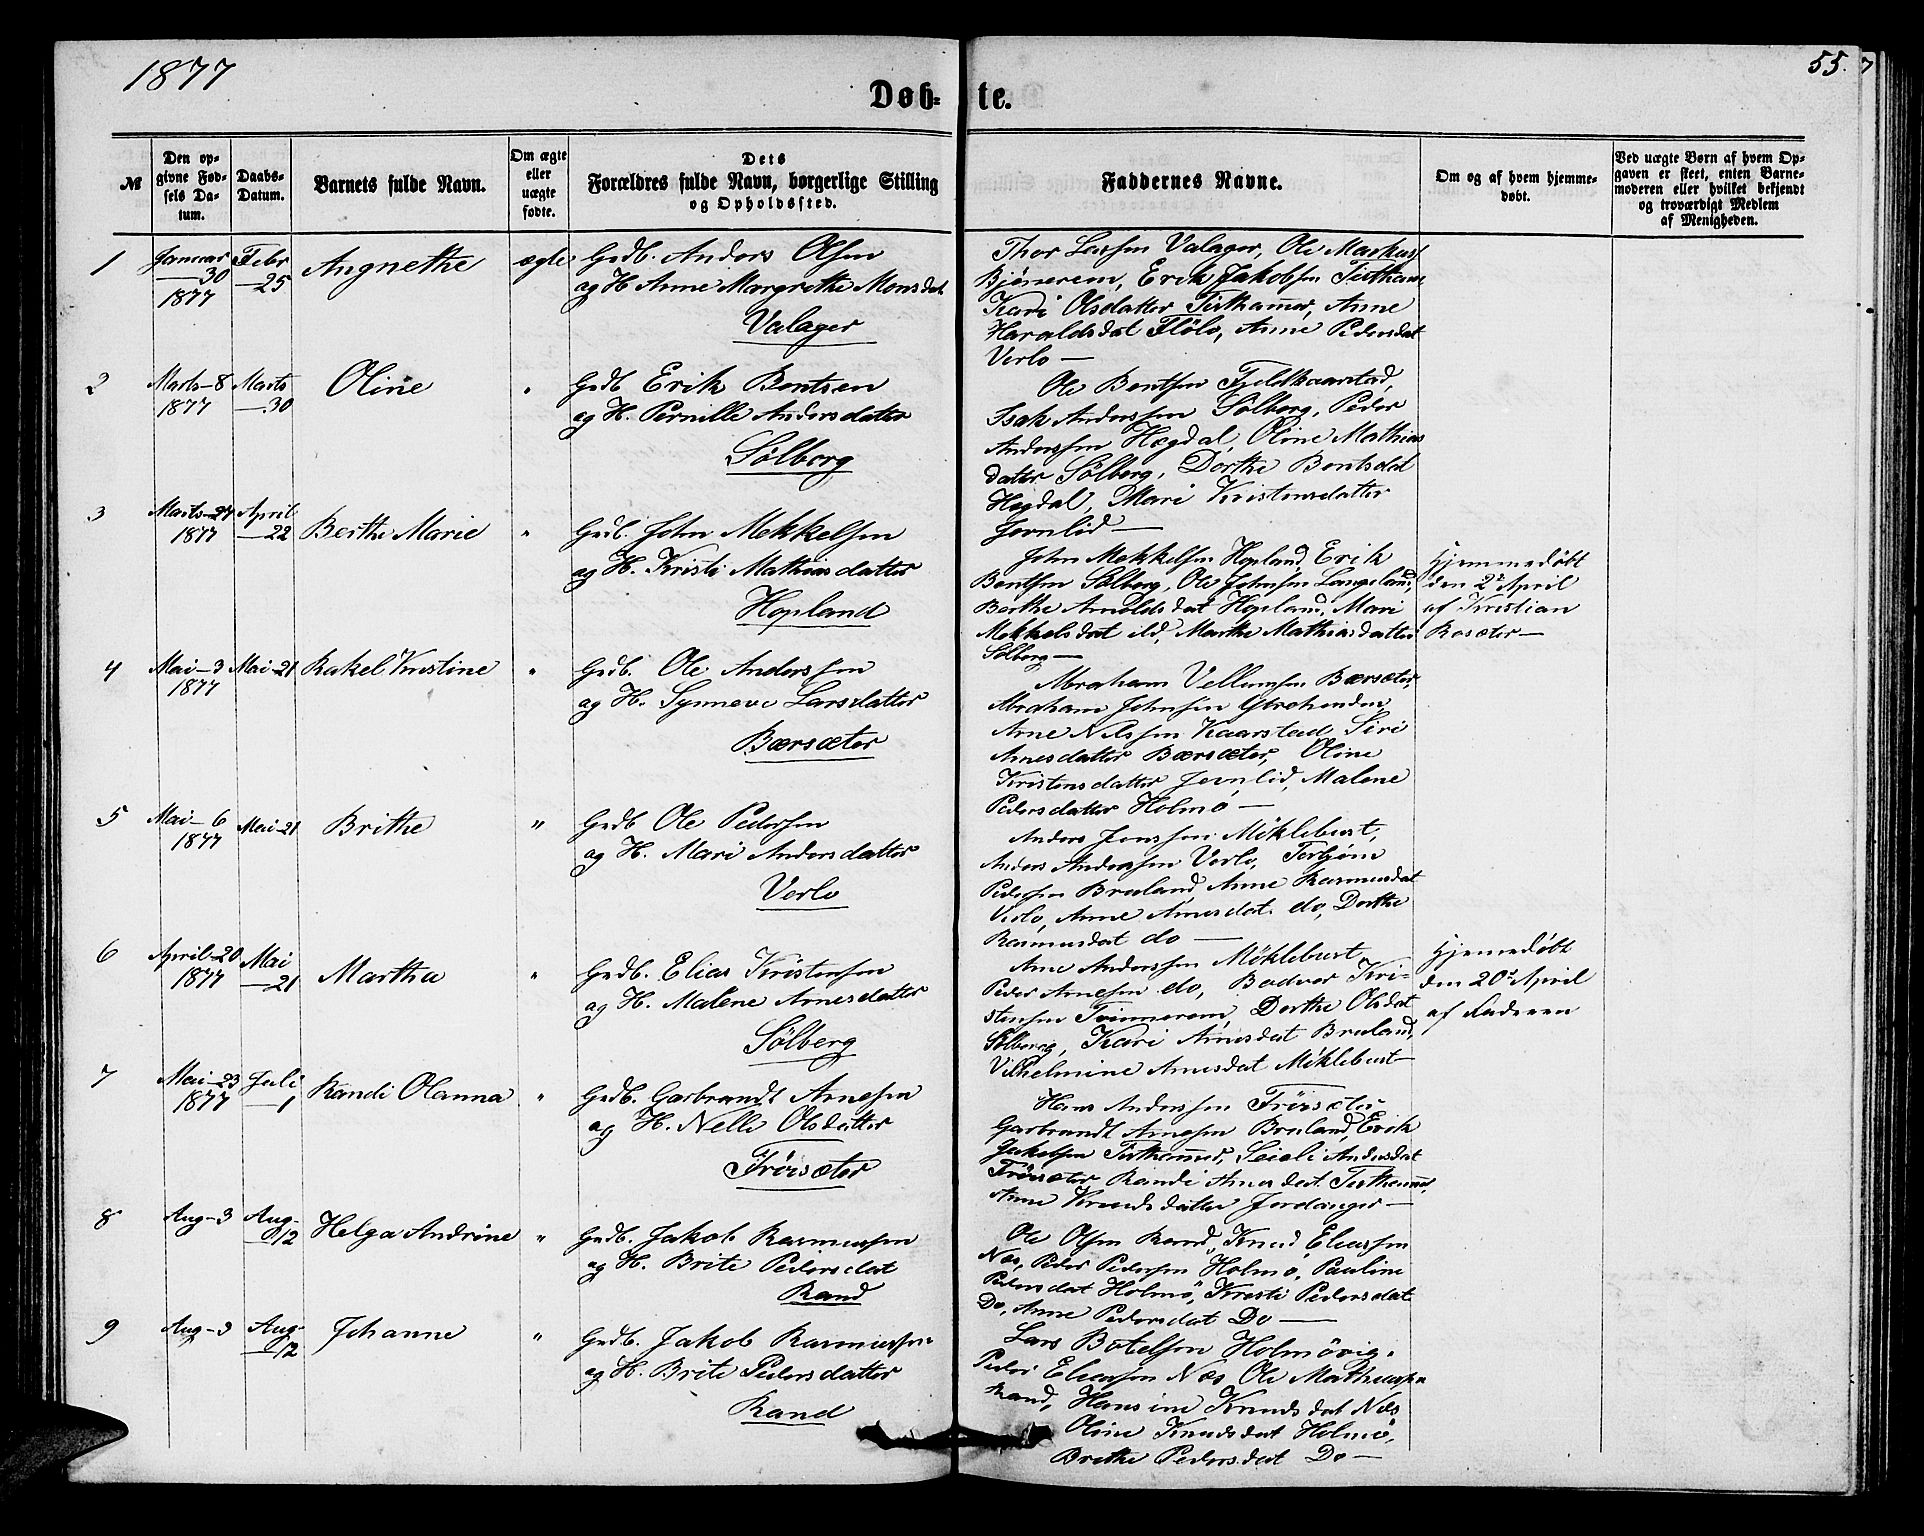 1877
55.
Døb-
te.
№
Den op-
givne Fød-
sels Da-
tum.
Daabs-
Datum.
Barnets fulde Navn.
Om ægte
eller
uægte
fødte.
Dets
Forældres fulde Navn, borgerlige Stilling
og Opholdssted.
Faddernes Navne.
Om og af hvem hjemme-
døbt.
Ved uægte Børn af hvem Op-
gaven er skeet, enten Barne-
moderen eller hvilket bekjendt
og troværdigt Medlem
af Menigheden.
1
Januar
30
1877
Febr
25
Angnethe
ægte
Grdb. Anders Olsen
og H. Anne Margrethe Monsdat
Valager
Thor Larsen Valager, Ole Markus
Bjönerem, Erik Jakobsen
Kari Olsdatter Anne
Haraldsdat Flölo, Anne Pedersdat
Verlo —
2
Marts-8
1877
Marts
—30
Oline
"
Grdb Erik Bentsen
og H. Pernille Andersdatter
Sölberg
Ole Bentsen Fjeldkaarstad,
Isak Anderssen Sölberg, Peder
Anderssen Hægdal, Oline Mathias
datter Sölberg, Dorthe Bentsdat
Hægdal, Mari Kristensdatter
Jernlid —
3
Marts-27
1877
April
—22
Berthe Marie
"
Grdb. John Mekkelsen
og H. Kristi Mathiasdatter
Hopland
John Mekkelsen Hopland, Erik
Bentsen Sölberg, Ole Johnsen Langeland,
Berthe Arnoldsdat Hopland, Mari
Mekkelsdat ild, Marthe Mathiasdatter
Sölberg —
Hjemmedöbt
den 2den April
af Kristian
Rosæter —
4
Mai-3
1877
Mai-21
Rakel Kristine
"
Grdb. Ole Anderssen
og H. Synneve Larsdatter
Bærsæter
Abraham Vellumsen Bærsæter,
Abraham Johnsen
Arne Nilssen Kaarstad, Siri
Arnesdatter Bærsæter, Oline
Kristensdatter Jernlid, Malene
Pedersdatter Holmö —
5
Mai-6
1877
Mai-21
Brithe
"
Grdb Ole Pedersen
og H. Mari Andersdatter
Verlo
Anders Jenssen Möklebust,
Anders Anderssen Verlo, Torbjörn
Pedersen Bruland, Anne Rasmusdat
Verlo, Anne Arnesdat. do, Dorthe
Rasmusdat do —
6
April-20
1877
Mai
—21
Martha
"
Grdb. Elias Kristensen
og H. Malene Arnesdatter
Sölberg
Arne Anderssen Möklebust
Peder Arnesen do, Bodvar Kri-
stensen Tvinnerem, Dorthe Olsdat
Sölberg, Kari Arnesdat Bruland,
Vilhelmine Arnesdat Möklebust —
Hjemmedöbt
den 20de April
af Faderen
7
Mai-23
1877
Juli
—1
Randi Olanna
"
Grdb. Garbrandt Arnesen
og H. Nelle Olsdatter
Frörsæter
Hans Anderssen Frörsæter
Garbrandt Arnesen Bruland, Erik
Jakobsen Andersdat
Frörsæter Randi Arnesdat.
Anne Knudsdatter Jordanger —
8
Aug-3
Aug-
12
Helga Andrine
"
Grdb. Jakob Rasmussen
og H. Brite Pedersdat
Rand
Ole Olsen Rand, Knud Eliassen
Næs, Peder Pedersen Holmö, Pauline
Pedersdat Holmö, Kristi Pedersdat
Do, Anne Pedersdat Do —
9
Aug-3
Aug-
12
Johanne
"
Grdb. Jakob Rasmussen
og H. Brite Pedersdatter
Rand
Lars Botelsen Holmövig,
Peder Eliassen Næs, Ole Matheussen
Rand, Hansine Knudsdat Næs
Oline Knudsdat Holmö,
Brithe Pedersdat Do —